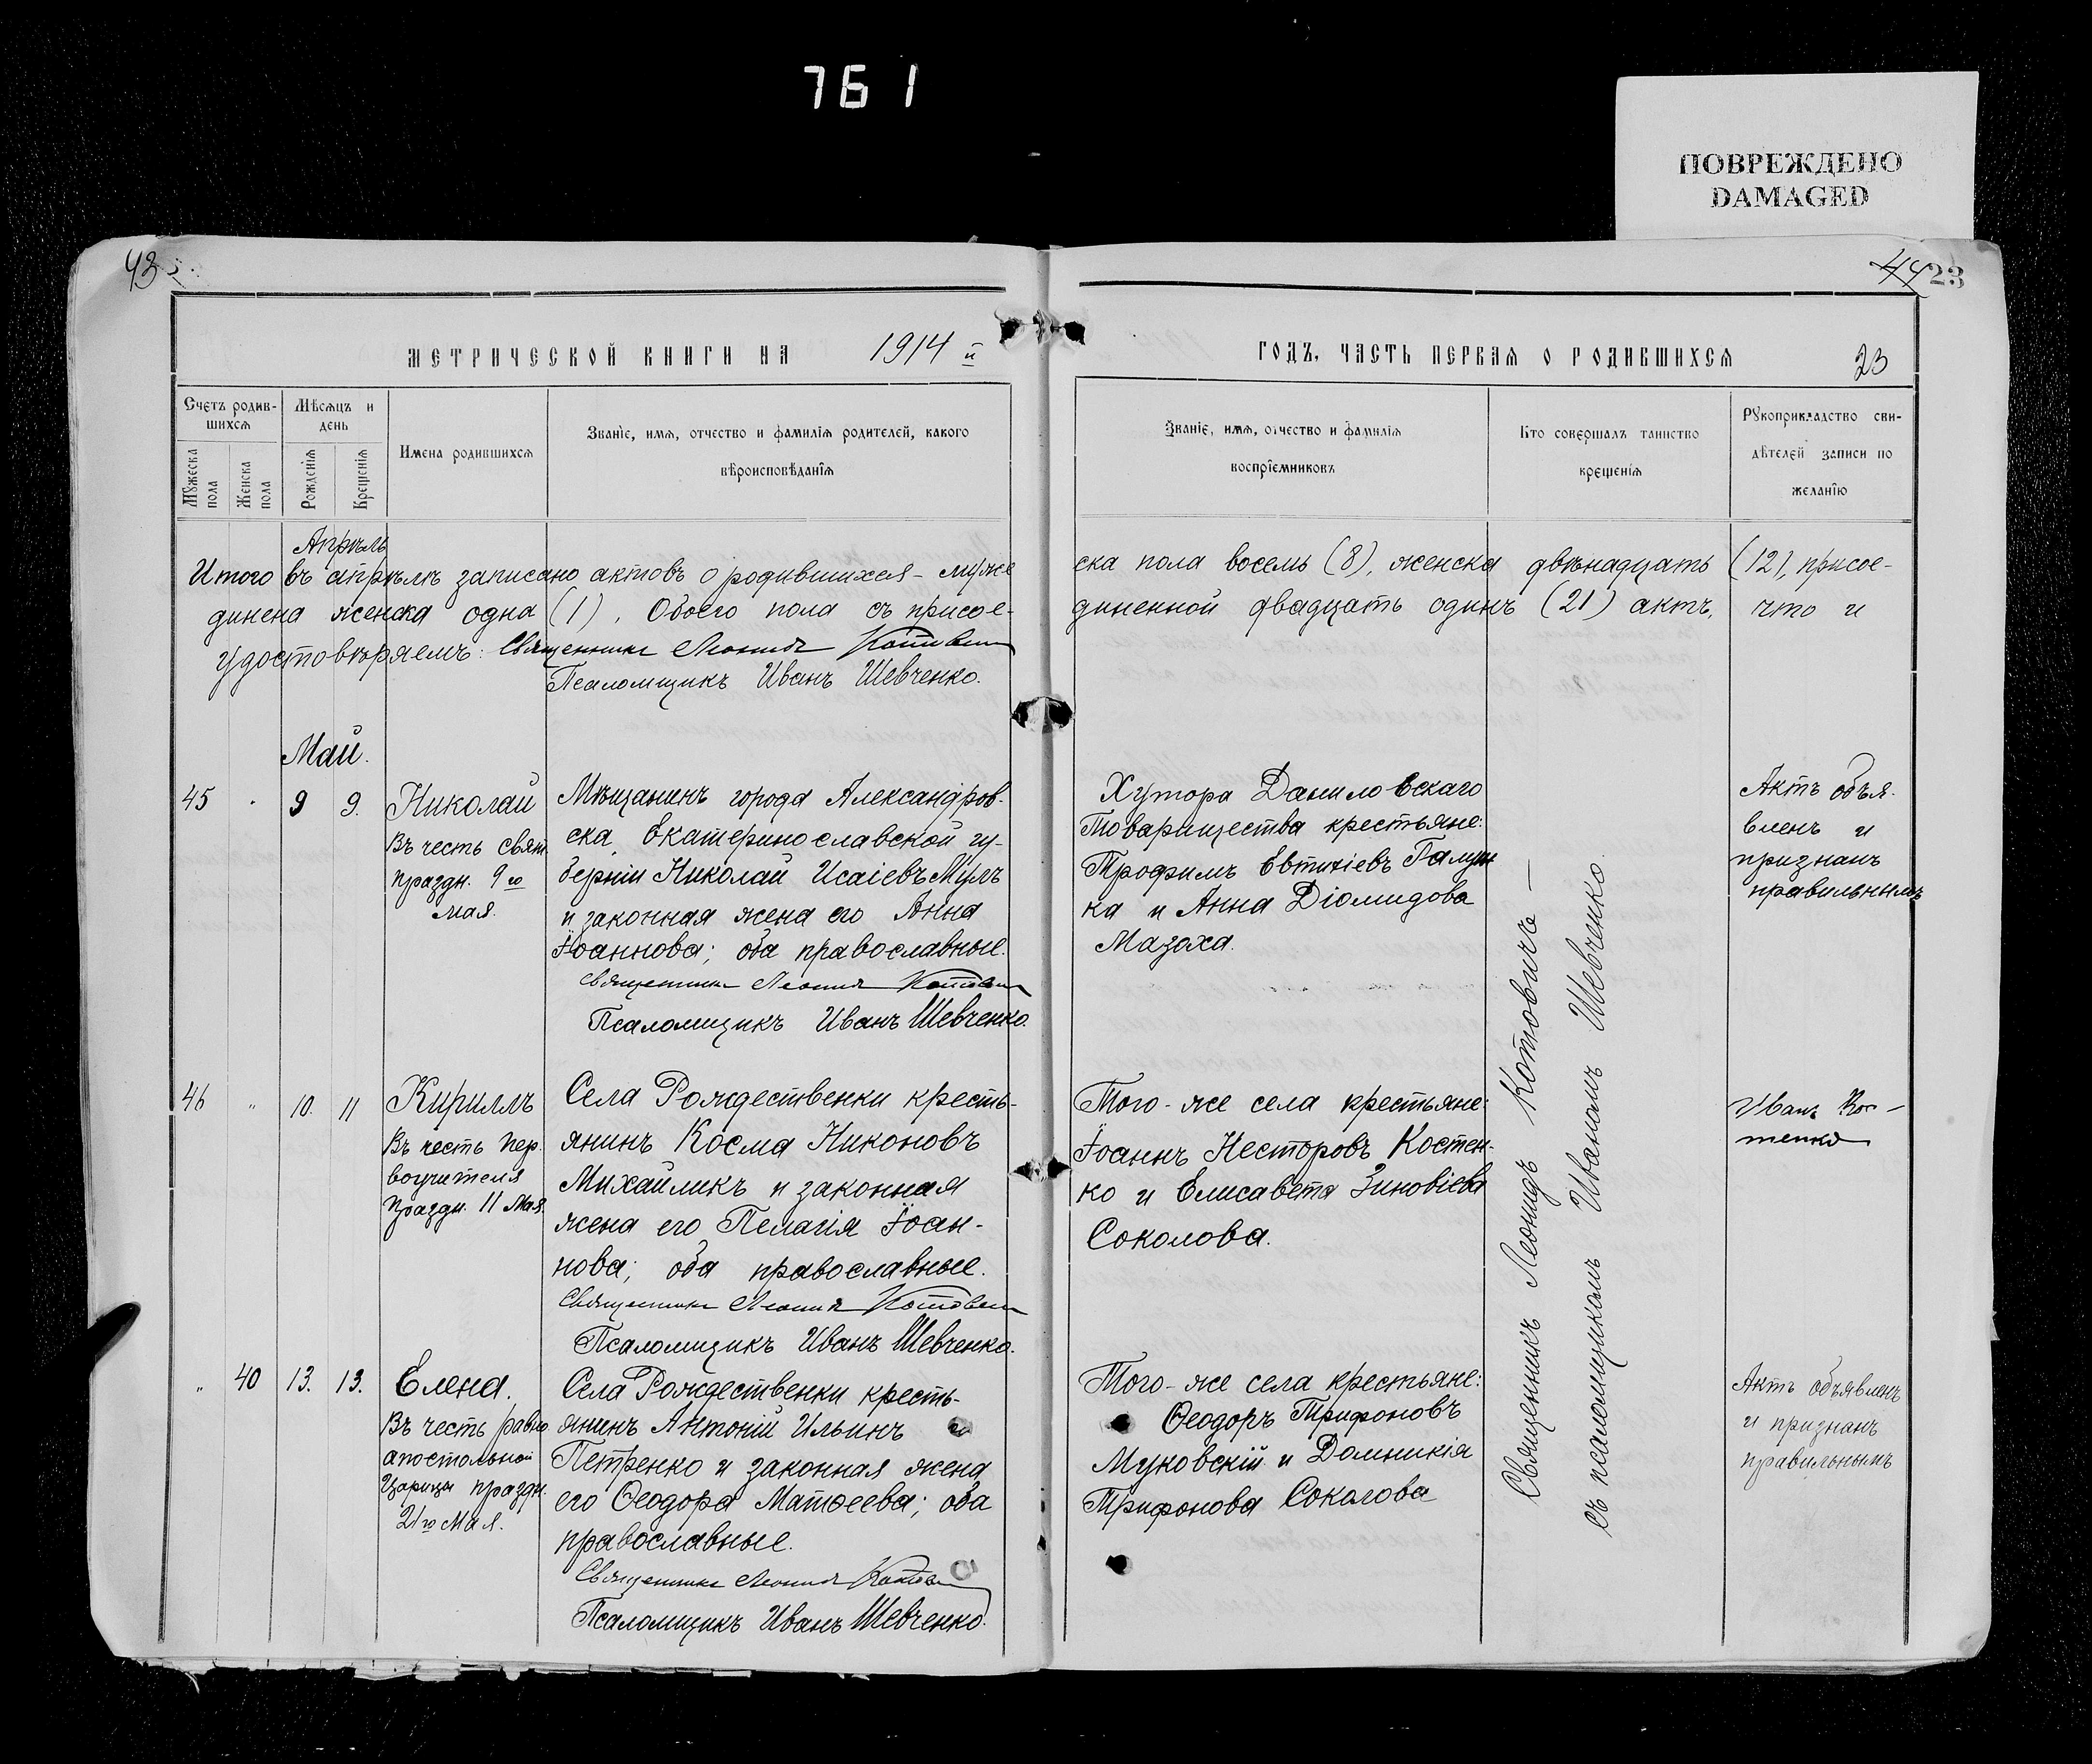 761
ПОВРЕЖДЕНО
DAMAGED
43
44 23
МЕТРИЧЕСКОЙ КНИГИ НА 1914 й
ГОДЪ, ЧАСТЬ ПЕРВАЯ О РОДИВШИХСЯ 23
Счетъ родив-
шихся
Мѣсяцъ и
день
Мужеска
пола
Женска
пола
Рожденія
Крещенія
Имена родившихся
Званіе, имя, отчество и фамилія родителей, какого
вѣроисповѣданія
Званіе, имя, отчество и фамилія
воспріемниковъ
Кто совершалъ таинство
крещенія
Рукоприкладство сви-
дѣтелей записи по
желанію
Апрѣль
Итого въ апрѣлѣ записано актовъ о родившихся - муже
ска пола восемь (8), женска двѣнадцать (12), присое-
динена женска одна (1). Обоего пола съ присое-
диненной двадцать одинъ (21) актъ, что и
удостовѣряемъ: Священникъ Леонидъ Котовичъ
Псаломщикъ Иванъ Шевченко.
Май.
45 " 9 9.
Николай
Въ честь свят.
праздн. 9го
мая.
Мѣщанинъ города Александров-
ска, Екатеринославской гу-
берніи Николай Исаіевъ Мулъ
и законная жена его Анна
Іоаннова; оба православные.
Священникъ Леонидъ Котовичъ
Псаломщикъ Иванъ Шевченко.
Хутора Даниловскаго
Товарищества крестьяне:
Трофимъ Евтихіевъ Галуш
ка и Анна Діомидова
Мазоха.
Актъ объя-
вленъ и
признанъ
правильнымъ
46 " 10. 11
Кириллъ
Въ честь пер-
воучителя
праздн. 11 Мая.
Села Рождественки кресть-
янинъ Косма Никоновъ
Михайликъ и законная
жена его Пелагія Іоан-
нова; оба православные.
Священникъ Леонидъ Котовичъ
Псаломщикъ Иванъ Шевченко.
Того-же села крестьяне:
Іоаннъ Несторовъ Костен-
ко и Елисавета Зиновіева
Соколова.
Иванъ Кос-
тенко
" 40 13. 13.
Елена.
Въ честь равно
апостольной
Царицы праздн.
21го Мая.
Села Рождественки кресть-
янинъ Антоній Ильинъ
Петренко и законная жена
его Ѳеодора Матѳеева; оба
православные.
Священникъ Леонидъ Котовичъ
Псаломщикъ Иванъ Шевченко.
Того-же села крестьяне:
Ѳеодоръ Трифоновъ
Муковскій и Домникія
Трифонова Соколова
Актъ объявленъ
и признанъ
правильнымъ
Священникъ Леонидъ Котовичъ —
съ псаломщикомъ Иваномъ Шевченко.